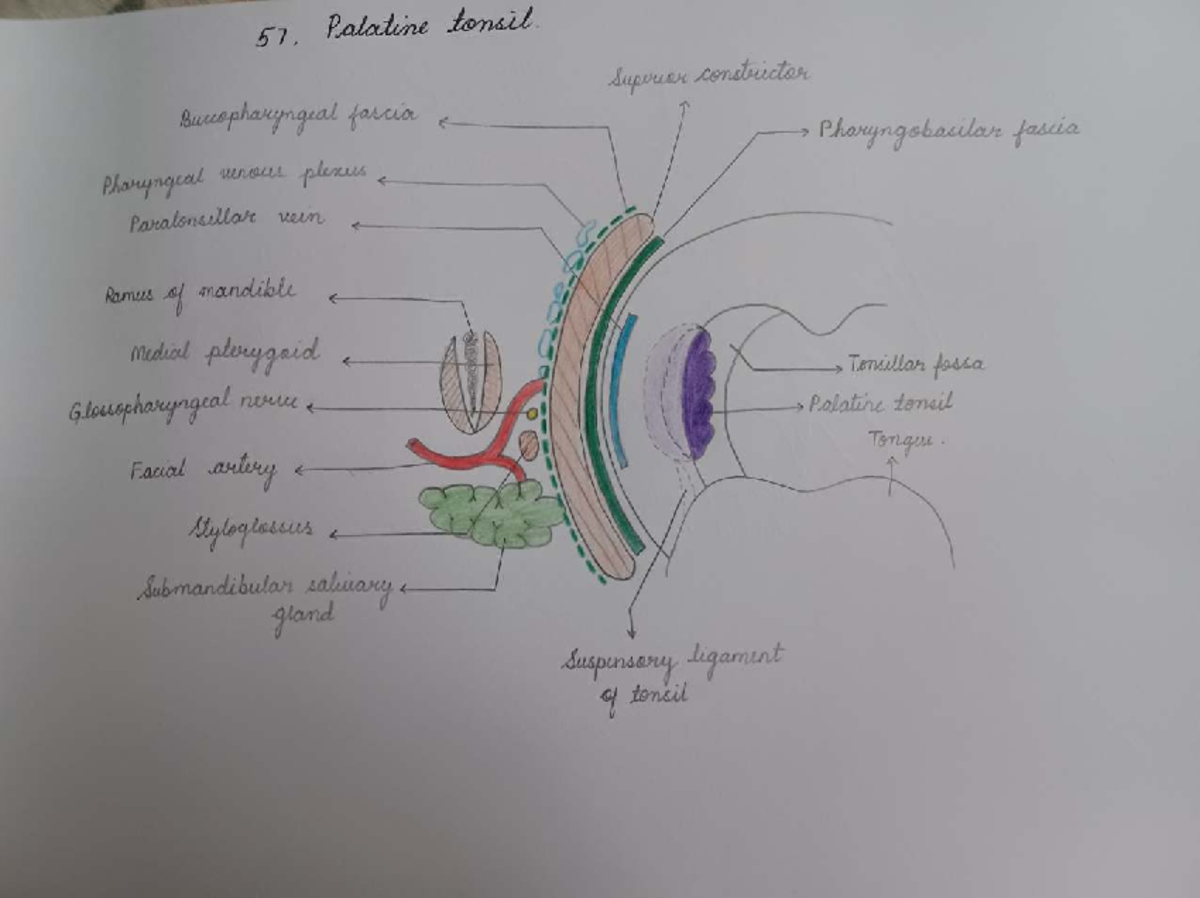 57. Palatine tonsil.
Superior constrictor
Buccopharyngeal fascia
Pharyngobasilar fascia
Pharyngeal venous plexus
Paratonsillar vein
Ramus of mandible
Medial pterygoid
Tonsillar fossa
Glossopharyngeal nerve
Palatine tonsil
Tongue.
Facial artery
Styloglossus
Submandibular salivary
gland
Suspensory ligament
of tonsil